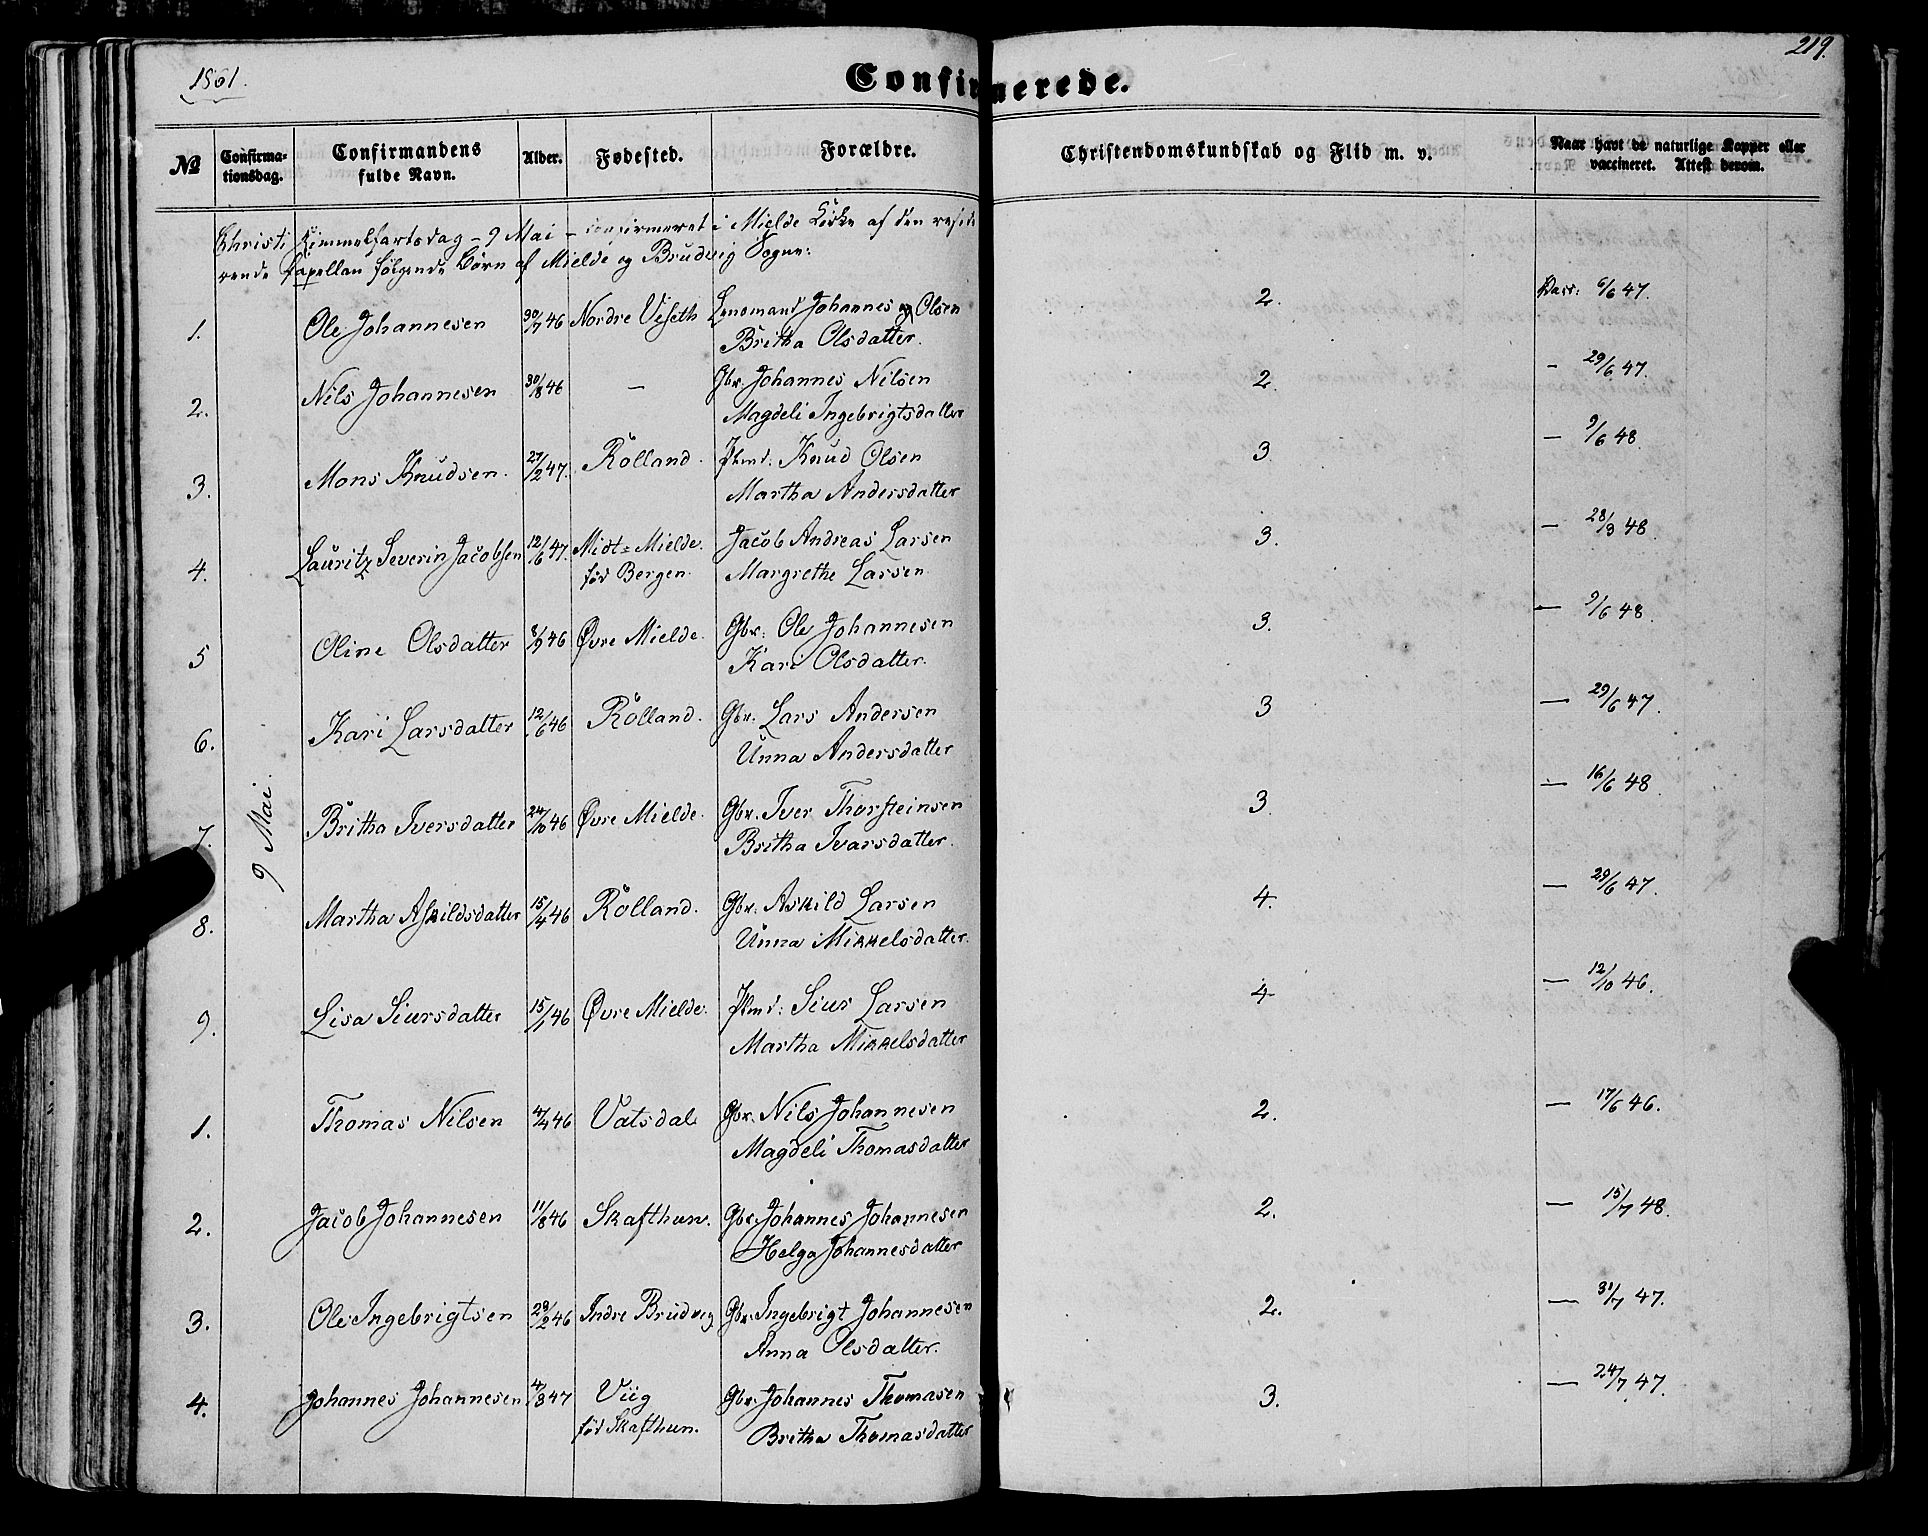 1861.
219.
Confirmerede.
№ Confirma-tionsdag. Confirmandens fulde Navn. Alder. Fødested. Forældre. Christendomskundskab og Flid m. v. Naar havt de naturlige Kopper eller vaccineret. Attest derom.
Christi Himmelfartsdag - 9 Mai - confirmeret i Mielde Kirke af den reside
rende Capellan følgende Børn af Mielde og Brudvig Sogne:
9 Mai.
1. Ole Johannesen 30/7 46 Nordre Viseth Lensmand Johannes Olsen 2. Vacc: 6/6 47.
Britha Olsdatter.
2. Nils Johannesen 30/8 46 — Gbr. Johannes Nilsen 2. - 29/6 47.
Magdeli Ingebrigtsdatter
3. Mons Knudsen. 27/2 47. Rölland. Hmd: Knud Olsen 3. — 9/6 48.
Martha Andersdatter
4. Lauritz Severin Jacobsen 12/6 47. Midt-Mielde. Jacob Andreas Larsen 3. — 28/3 48.
fød Bergen. Margrethe Larsen.
5 Oline Olsdatter 8/9 46 Øvre Mielde. Gbr: Ole Johannesen 3. — 9/6 48.
Kari Olsdatter.
6. Kari Larsdatter 12/6 46 Rölland. Gbr: Lars Andersen 3 — 29/6 47.
Unna Andersdatter
7. Britha Iversdatter 24/10 46 Øvre Mielde. Gbr. Iver Thorsteinsen 3. — 16/6 48
Britha Ivarsdatter.
8. Martha Askildsdatter 15/4 46 Rölland. Gbr. Askild Larsen 4. — 29/6 47.
Unna Mikkelsdatter.
9. Lisa Siursdatter 15/1 46 Øvre Mielde. Hmd: Siur Larsen 4 — 12/10 46.
Martha Mikkelsdatter
1. Thomas Nilsen 4/4 46 Vatsdal Gbr. Nils Johannesen 2. — 17/6 46.
Magdeli Thomasdatter
2. Jacob Johannesen 11/8 46 Skafthun. Gbr. Johannes Johannesen 2. — 15/7 48.
Helga Johannesdatter
3. Ole Ingebrigtsen 28/2 46 Indre Brudvig Gbr. Ingebrigt Johannesen 2. — 31/7 47.
Anna Olsdatter.
4. Johannes Johannesen 4/8 47 Viig Gbr. Johannes Thomasen 3. — 24/7 47.
fød Skafthun. Britha Thomasdatter